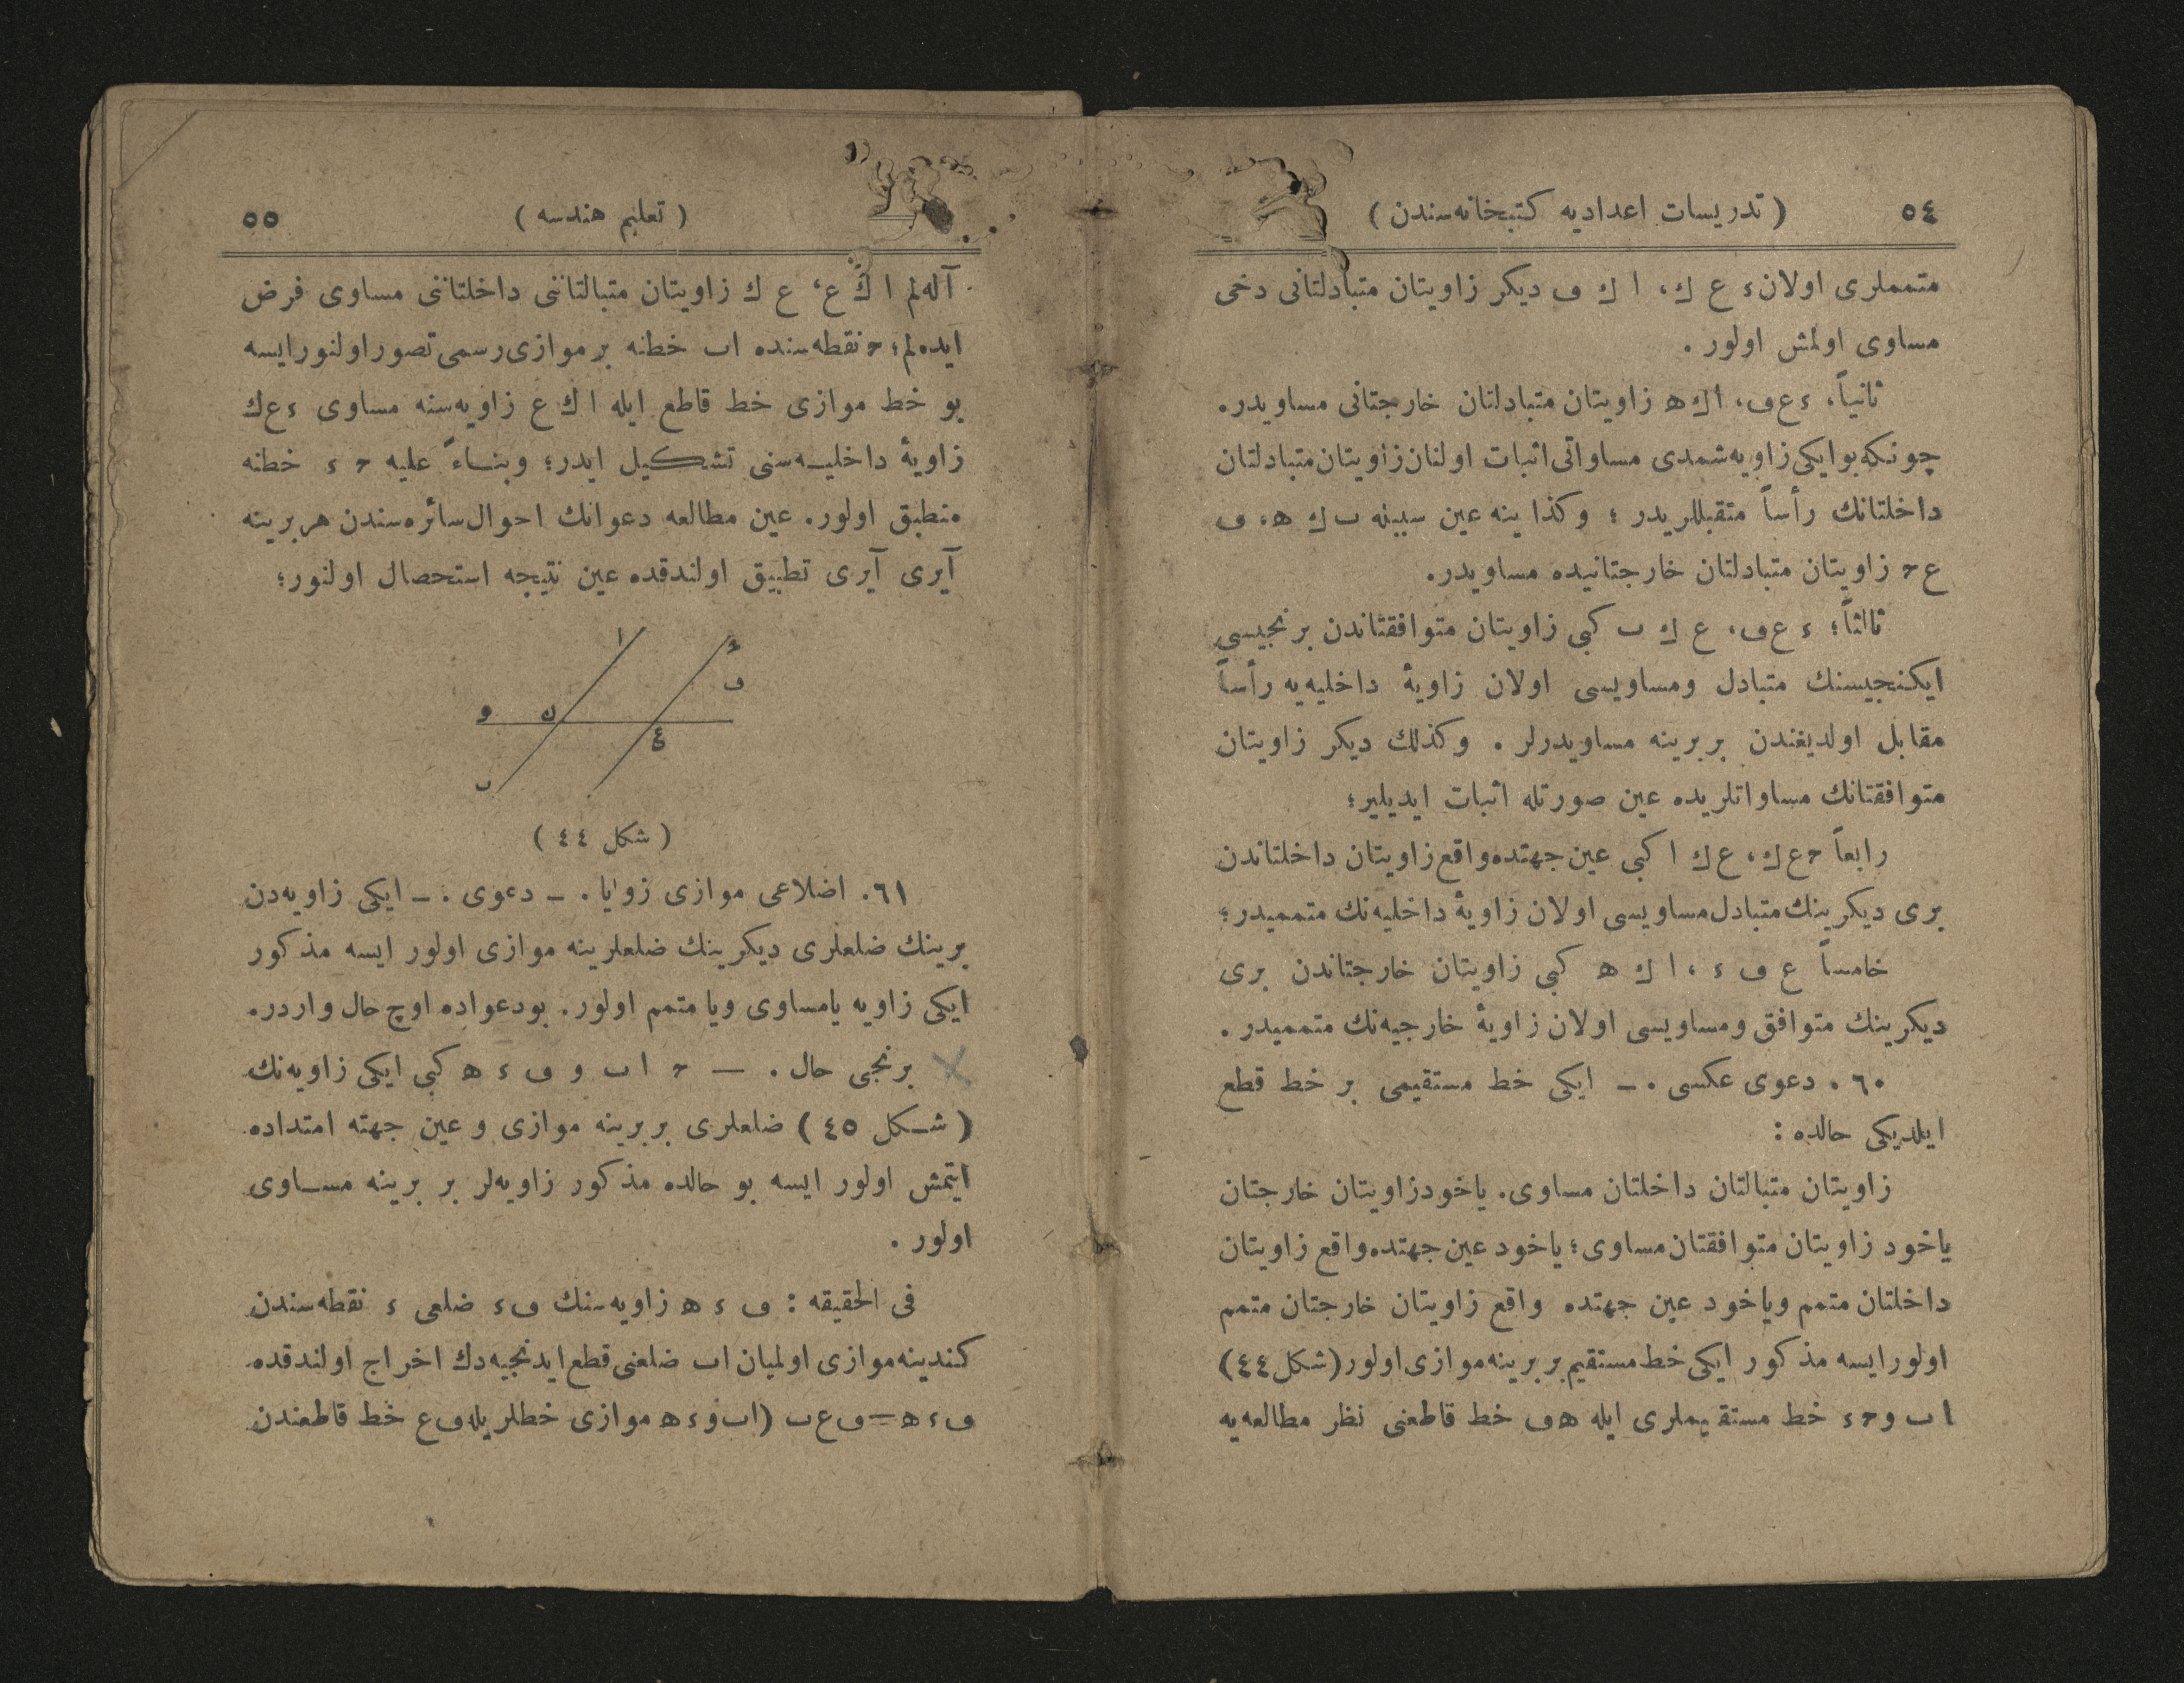 ٥٤ ( تدريسات اعداديه كتبخانه‌سندن )
متمملری اولان ء ع ك، ا ك ف ديكر زاويتان متبادلتانی دخی
مساوی اولمش اولور .
ثانياً، ء ع ف، ا ك ه زاويتان متبادلتان خارجتانی مساويدر.
چونكه بو ايكی زاويه شمدی مساواتی اثبات اولنان زاويتان متبادلتان
داخلتانك رأساً متقبللريدر ؛ وكذا ينه عين سببنه ب ك ه، ف
ع ح زاويتان متبادلتان خارجتانيده مساويدر.
ثالثاً؛ ء ع ف، ع ك ب كبی زاويتان متوافقتاندن برنجيسی
ايكنجيسنك متبادل ومساويسی اولان زاويۀ داخليه‌يه رأساً
مقابل اولديغندن بربرينه مساويدرلر . وكذلك ديكر زاويتان
متوافقتانك مساواتلريده عين صورتله اثبات ايديلير؛
رابعاً ح ع ك، ع ك ا كبی عين جهتده واقع زاويتان داخلتاندن
بری ديكرينك متبادل مساويسی اولان زاويۀ داخليه‌نك متمميدر؛
خامساً ع ف ء ، ا ك ه كبی زاويتان خارجتاندن بری
ديكرينك متوافق ومساويسی اولان زاويۀ خارجيه‌نك متمميدر .
٦٠ . دعوی عكسی . ــ ايكی خط مستقيمی بر خط قطع
ايلديكی حالده :
زاويتان متبالتان داخلتان مساوی. ياخود زاويتان خارجتان
ياخود زاويتان متوافقتان مساوی؛ ياخود عين جهتده واقع زاويتان
داخلتان متمم وياخود عين جهتده واقع زاويتان خارجتان متمم
اولور ايسه مذكور ايكی خط مستقيم بربرينه موازی اولور (شكل ٤٤)
ا ب و ح ء خط مستقيملری ايله ه ف خط قاطعنی نظر مطالعه‌يه
( تعليم هندسه ) ٥٥
آله‌لم ا ك ع، ع ك زاويتان متبالتاننی داخلتاننی مساوی فرض
ايده‌لم؛ ح نقطه‌سنده اب خطنه بر موازی رسمی تصور اولنور ايسه
بو خط موازی خط قاطع ايله ا ك ع زاويه‌سنه مساوی ء ع ك
زاويۀ داخليه‌سنی تشكيل ايدر؛ وبناءً عليه ح ء خطنه
منطبق اولور. عين مطالعه دعوانك احوال سائره‌سندن هر برينه
آيری آيری تطبيق اولندقده عين نتيجه استحصال اولنور؛
ا ء
ف
و ن
ع
ب
( شكل ٤٤ )
٦١. اضلاعی موازی زوايا. ــ دعوی . ــ ايكی زاويه‌دن
برينك ضلعلری ديكرينك ضلعلرينه موازی اولور ايسه مذكور
ايكی زاويه يا مساوی ويا متمم اولور. بو دعواده اوچ حال واردر.
برنجی حال . — ح ا ب و ف ء ه كبی ايكی زاويه‌نك
( شكل ٤٥ ) ضلعلری بربرينه موازی و عين جهته امتداده
ايتمش اولور ايسه بو حالده مذكور زاويه‌لر بر برينه مساوی
اولور .
فی الحقيقه : ف ء ه زاويه‌سنك ف ء ضلعی ء نقطه‌سندن
كندينه موازی اولميان اب ضلعنی قطع ايدنجيه‌دك اخراج اولندقده
ف ء ه = ف ع ب (اب و ء ه موازی خطلريله ف ع خط قاطعندن